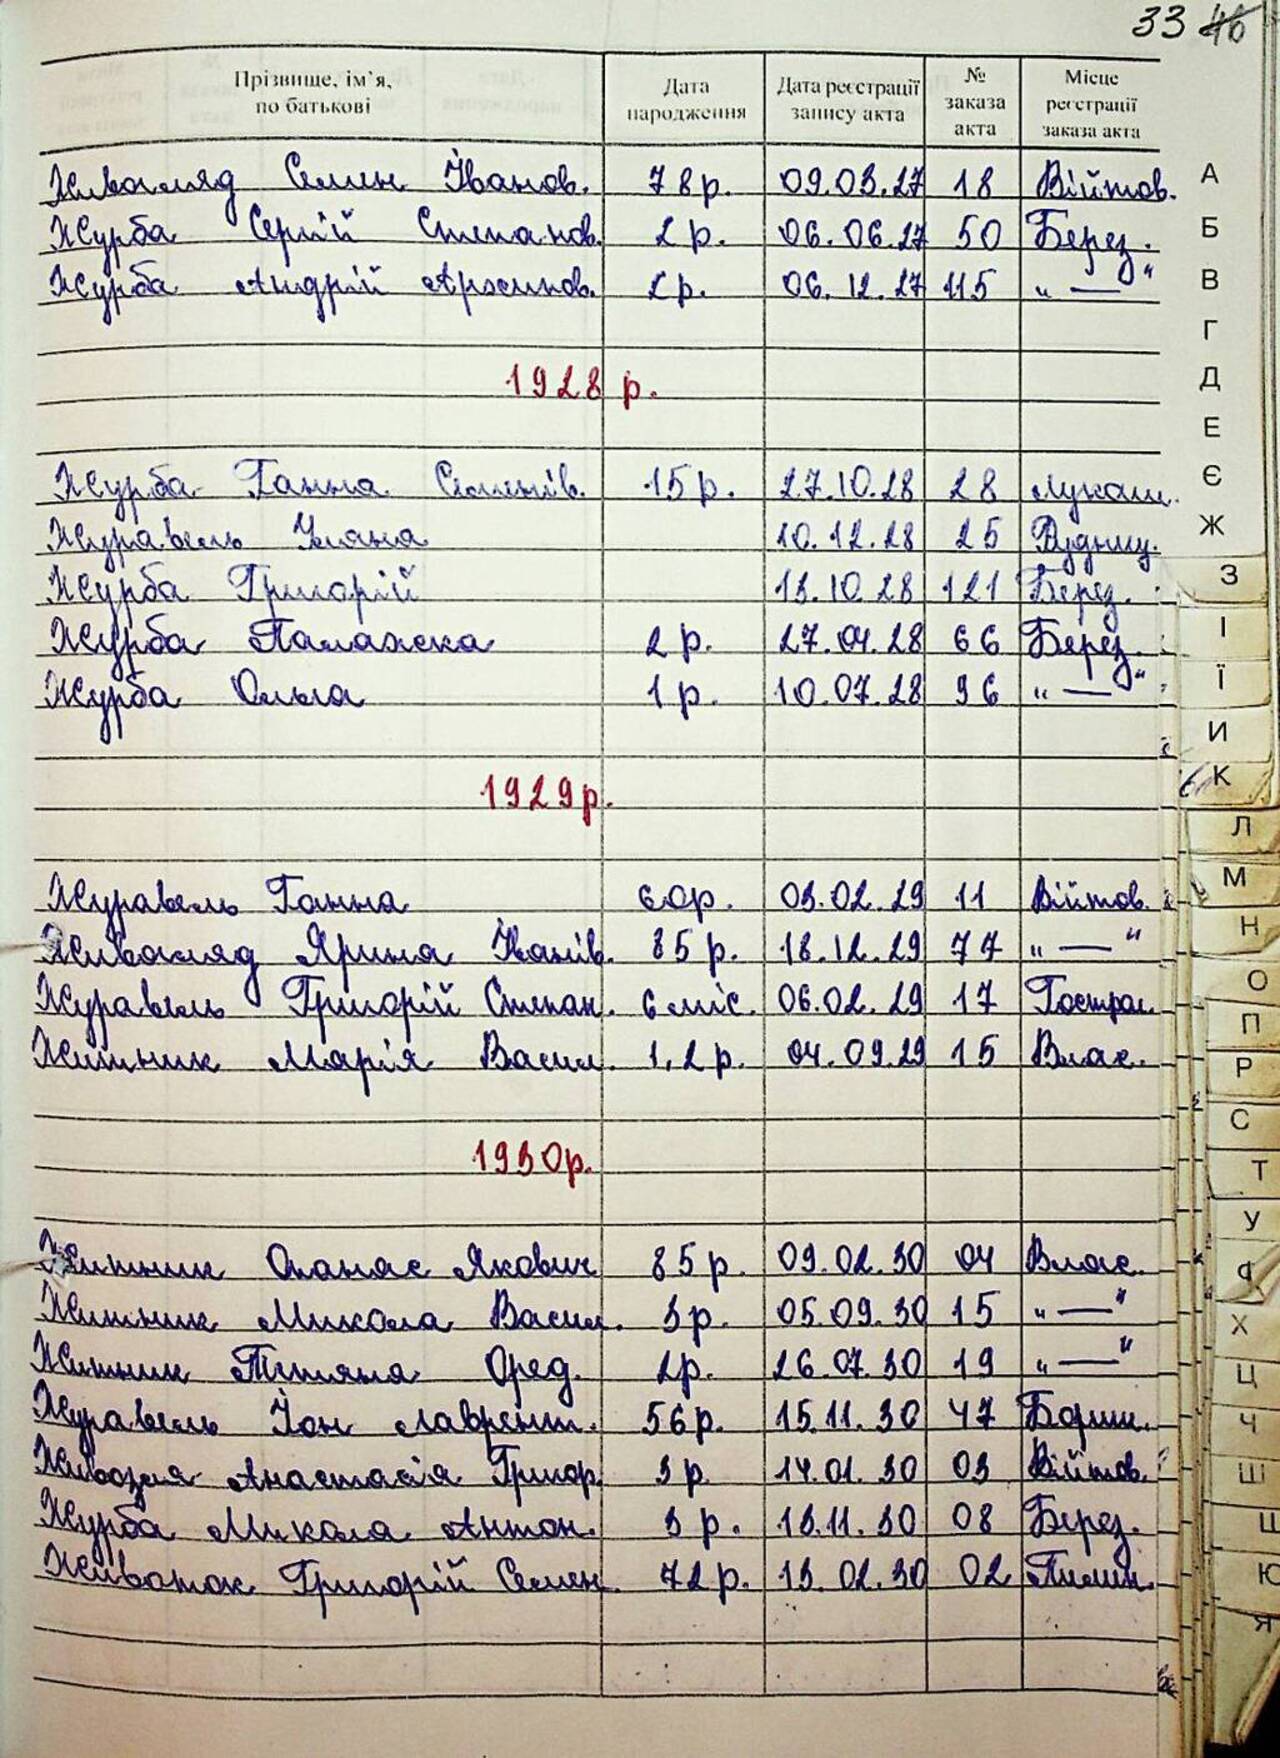 33 46
Прізвище, ім'я, по батькові Дата народження Дата реєстрації запису акта № заказа акта Місце реєстрації заказа акта
Живогляд Семен Іванов. 78 р. 09.03.27 18 Війтов.
Журба Сергій Степанов. 2 р. 06.06.27 50 Берез.
Журба Андрій Арсенов. 2 р. 06.12.27 115 " — "
1928 р.
Журба Ганна Семенів. 15 р. 27.10.28 28 Лукаш.
Журавель Уляна 10.12.28 25 Рудниц.
Журба Григорій 13.10.28 121 Берез.
Журба Палажка 2 р. 27.04.28 66 Берез.
Журба Ольга 1 р. 10.07.28 96 " — "
1929 р.
Журавель Ганна 60 р. 03.02.29 11 Війтов.
Живогляд Ярина Іванів. 85 р. 18.12.29 77 " — "
Журавель Григорій Степан. 6 міс. 06.02.29 17 Гострол.
Житник Марія Васил. 1,2 р. 04.09.29 15 Влас.
1930 р.
Житник Опанас Якович 85 р. 09.02.30 04 Влас.
Житник Микола Васил. 3 р. 05.09.30 15 " — "
Житник Тетяна Оред. 2 р. 26.07.30 19 " — "
Журавель Йон Лаврент. 56 р. 15.11.30 47 Борщ.
Анастасія Григор. 3 р. 14.01.30 03 Війтов.
Журба Микола Антон. 3 р. 13.11.30 08 Берез.
Животок Григорій Семен. 72 р. 13.02.30 02 Пилип.
А
Б
В
Г
Д
Е
Є
Ж
З
І
Ї
И
К
Л
М
Н
О
П
Р
С
Т
У
Ф
Х
Ц
Ч
Ш
Щ
Ю
Я